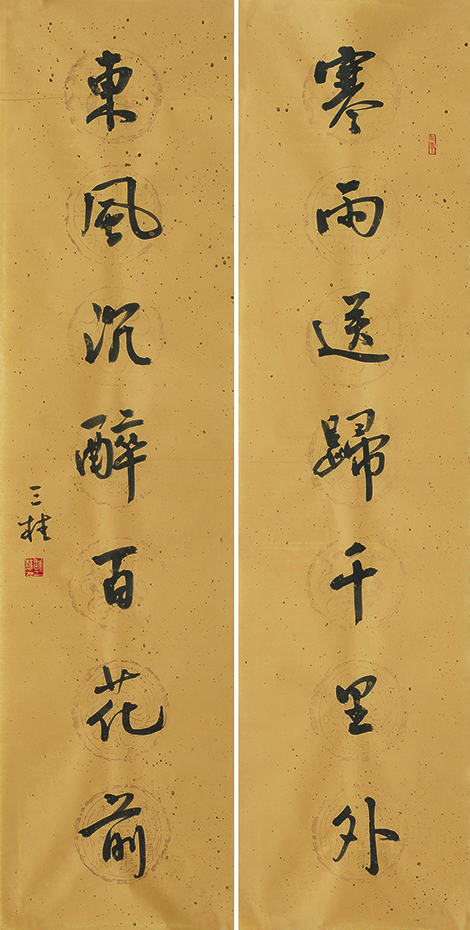 寒雨送歸千里外
東風沉醉百花前
三桂